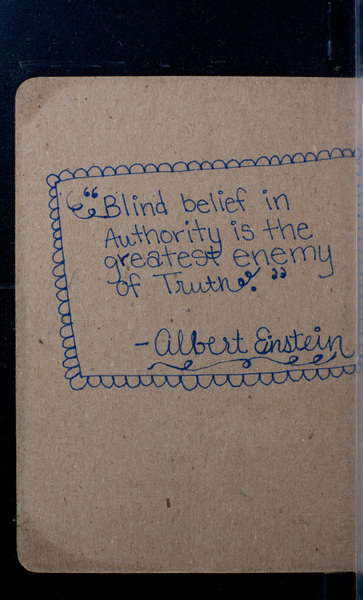 “Blind belief in
Authority is the
greatest enemy
of Truth.”
-Albert Einstein